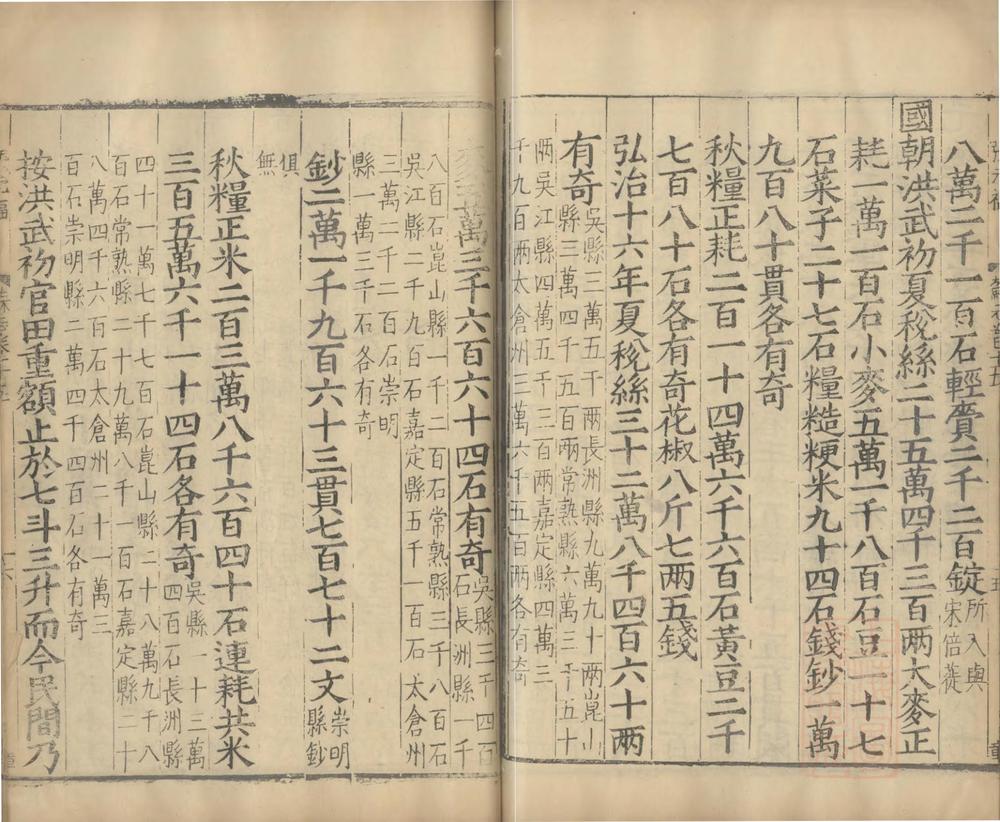 八萬二千一百石輕賫二千二百錠所入與
宋倍蓰
國朝洪武初夏稅絲二十五萬四千三百兩大麥正
耗一萬一百石小麥五萬一千八百石豆一十七
石菜子二十七石糧糙粳米九十四石錢鈔一萬
九百八十貫各有奇
秋糧正耗二百一十四萬六千六百石黃豆二千
七百八十石各有奇花椒八斤七兩五錢
弘治十六年夏稅絲三十二萬八千四百六十兩
有奇吳縣三萬五千兩長洲縣九萬九十兩崑山
縣三萬四千五百兩常熟縣六萬三千五十
兩吳江縣四萬五千三百兩嘉定縣四萬三
千九百兩太倉州三萬六千五百兩各有奇
萬三千六百六十四石有奇吳縣三千四百
石長洲縣一千
八百石崑山縣一千二百石常熟縣三千八百石
吳江縣二千九百石嘉定縣五千一百石太倉州
三萬二千二百石崇明
縣一萬三千石各有奇
鈔二萬一千九百六十三貫七百七十二文崇明
縣鈔
俱
無
秋糧正米二百三萬八千六百四十石連耗共米
三百五萬六千一十四石各有奇吳縣一十三萬
四百石長洲縣
四十一萬七千七百石崑山縣二十八萬九千八
百石常熟縣二十九萬八千一百石嘉定縣二十
八萬四千六百石太倉州二十一萬三
百石崇明縣二萬四千四百石各有奇
按洪武初官田重額止於七斗三升而今民間乃